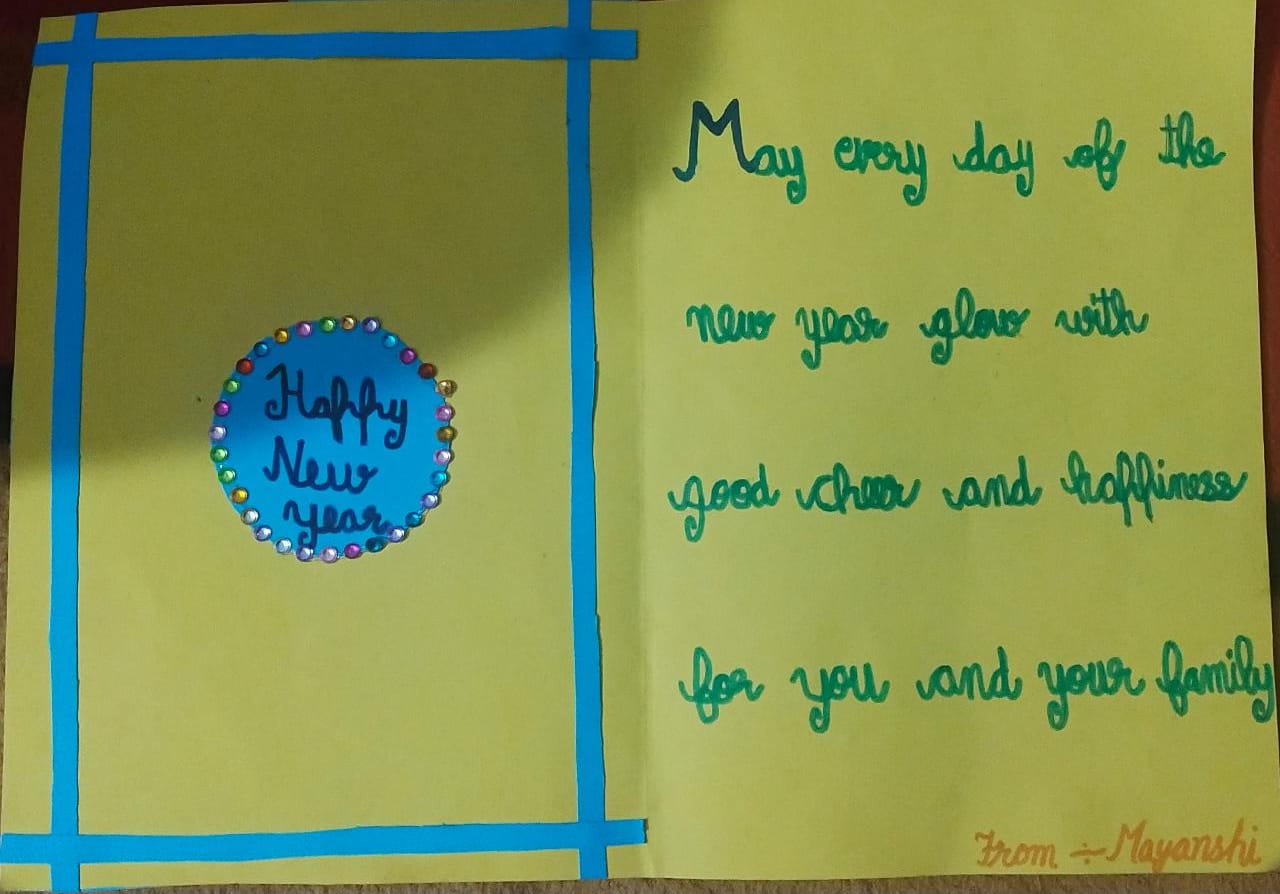 Happy
New
year
May every day of the
new year glow with
good cheer and happiness
for you and your family
From ÷ Mayanshi